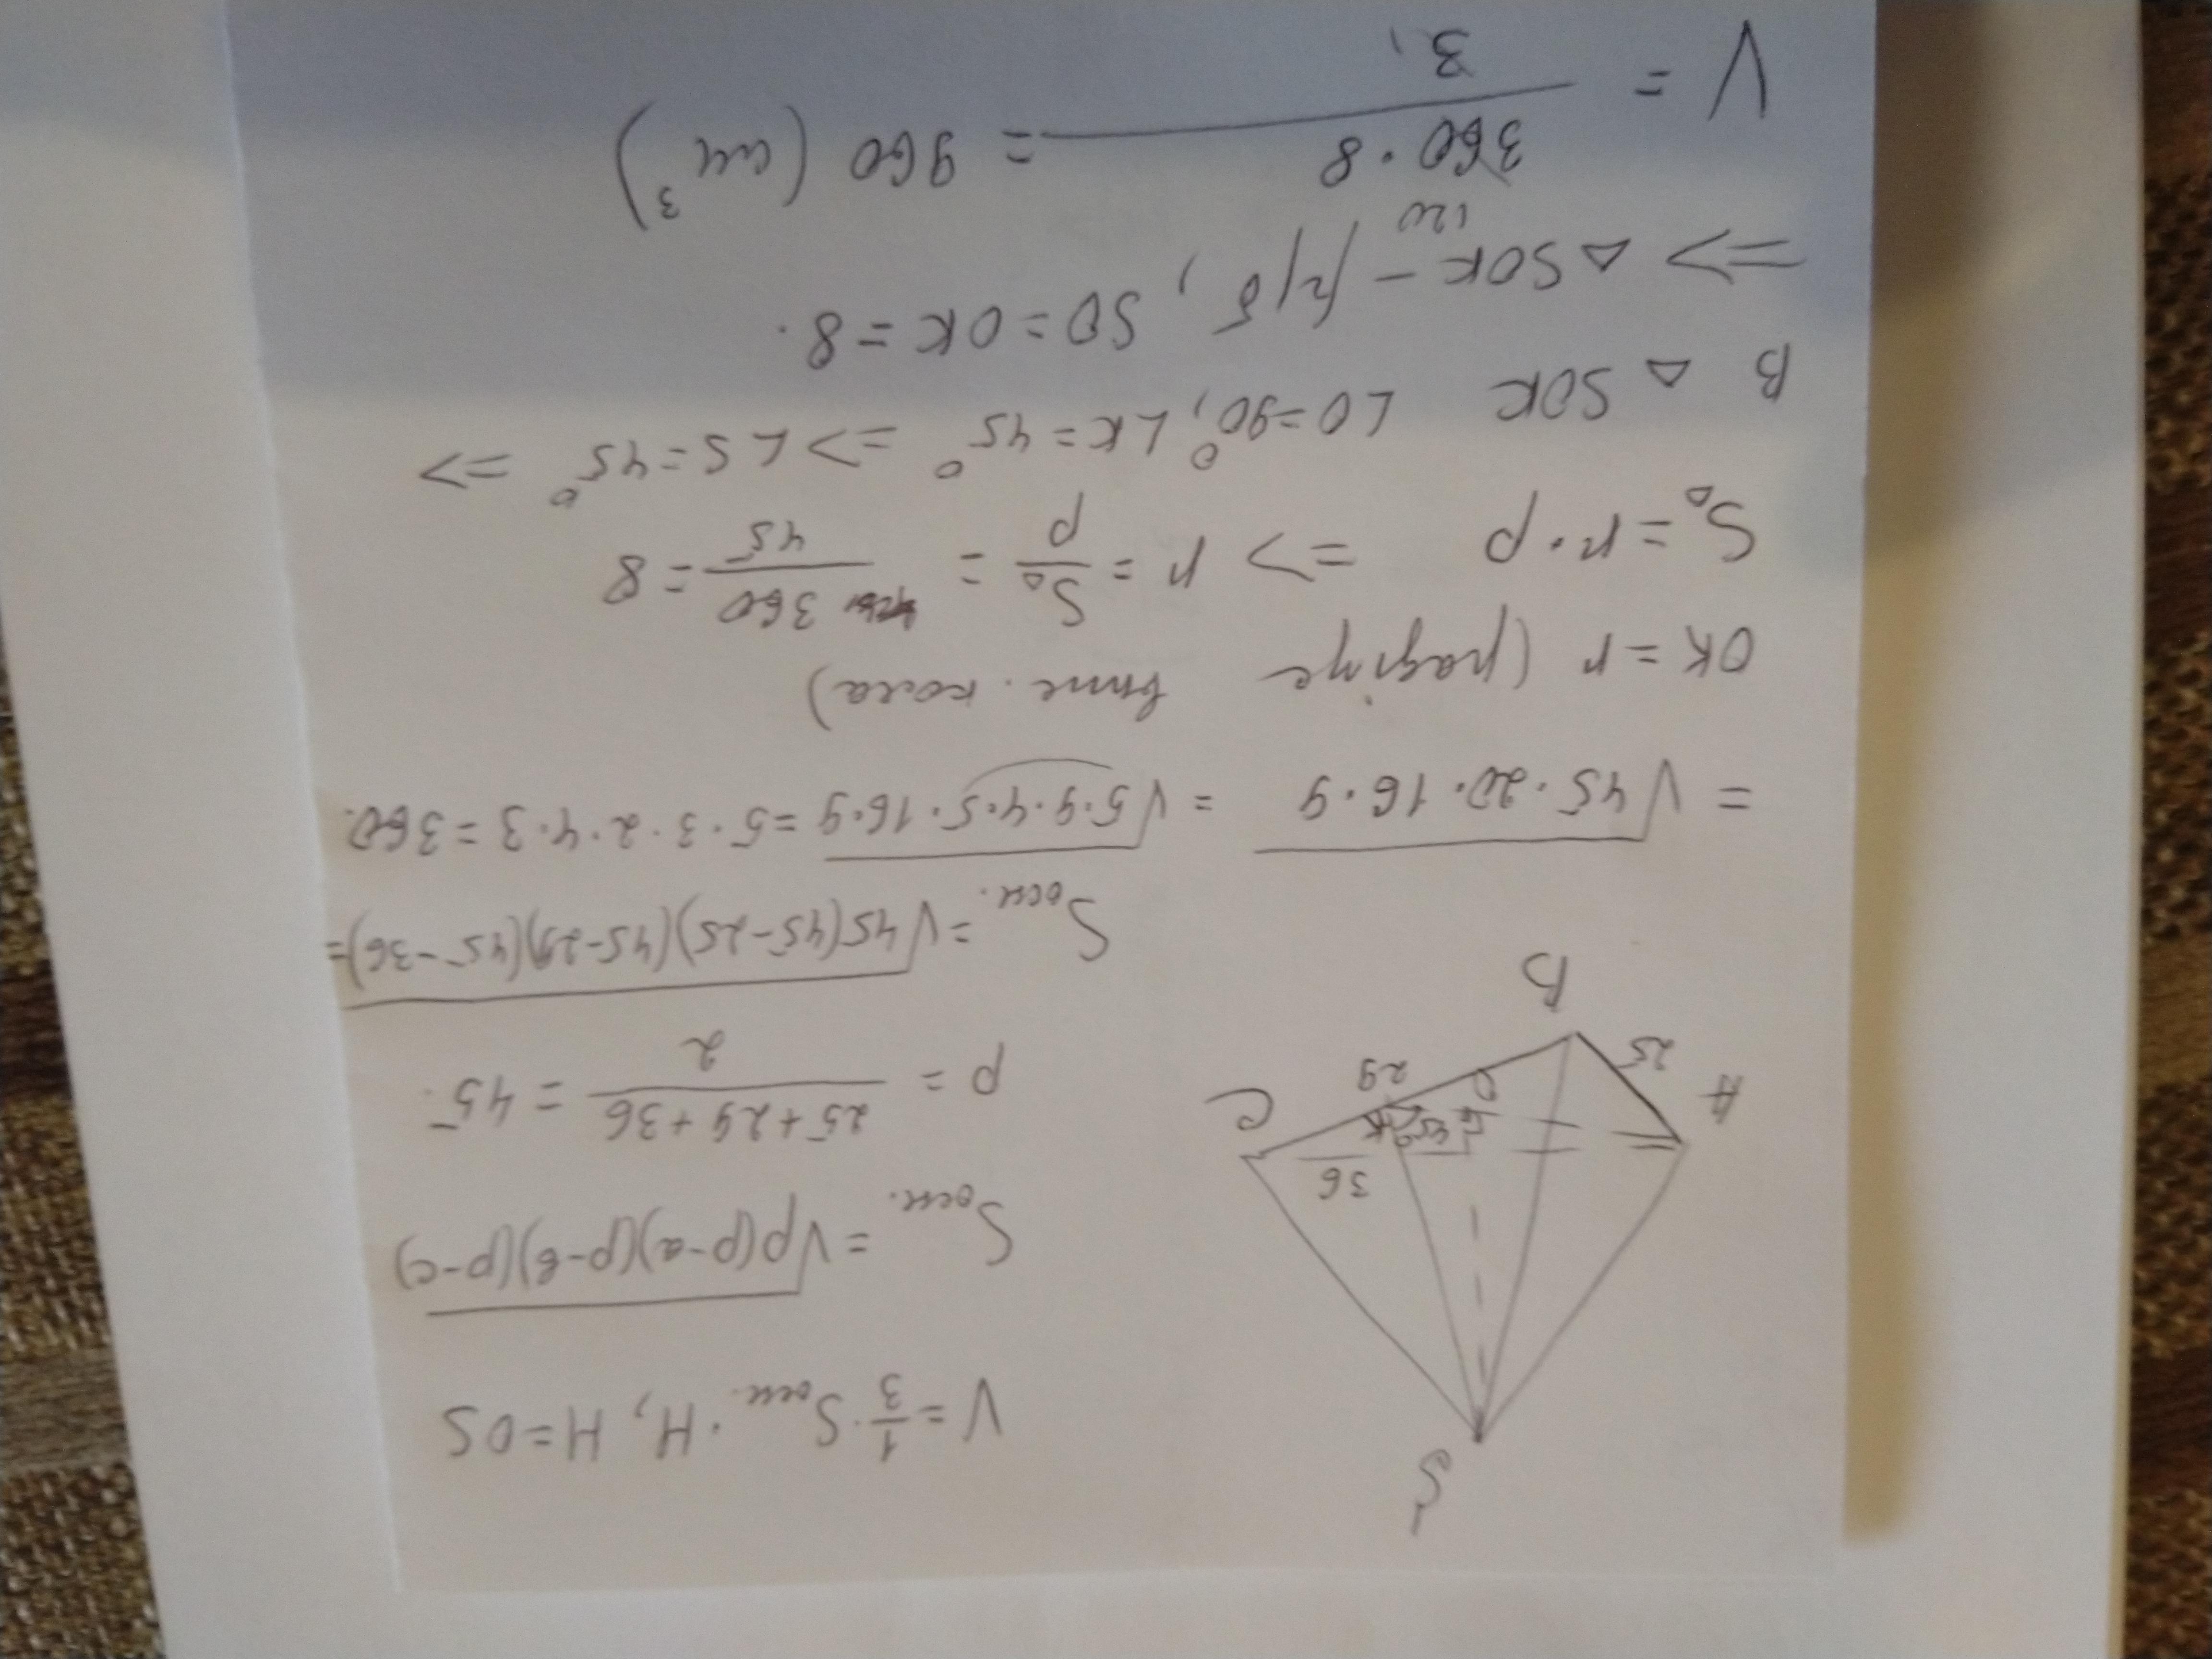 S
V = 1/3 · Sосн. · H, H = OS
Sосн. = √p(p-a)(p-b)(p-c)
36
45°
K
O
A
C
25
29
B
p = (25+29+36)/2 = 45.
Sосн. = √45(45-25)(45-29)(45-36) =
= √45·20·16·9 = √5·9·4·5·16·9 = 5·3·2·4·3 = 360.
OK = r (радіус впис. кола)
S△ = r·p => r = S△/p = 360/45 = 8
В △ SOK ∠O=90°, ∠K=45° => ∠S=45° =>
=> △ SOK – р/б, SO = OK = 8.
120
V = 360·8/3 = 960 (см³)
1